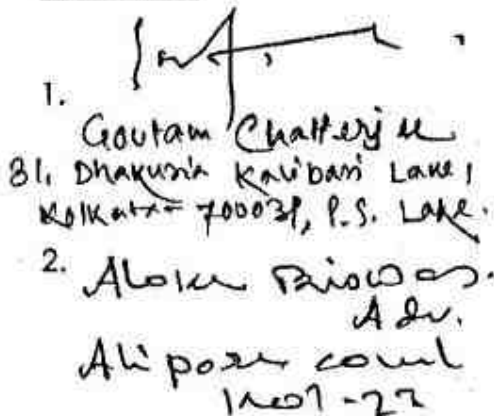 1.
Goutam Chatterjee
31, Dhakuria Kalibari Lane,
Kolkata- 700031, P.S. Lake.
2. Aloke Biswas.
Adv.
Alipore court